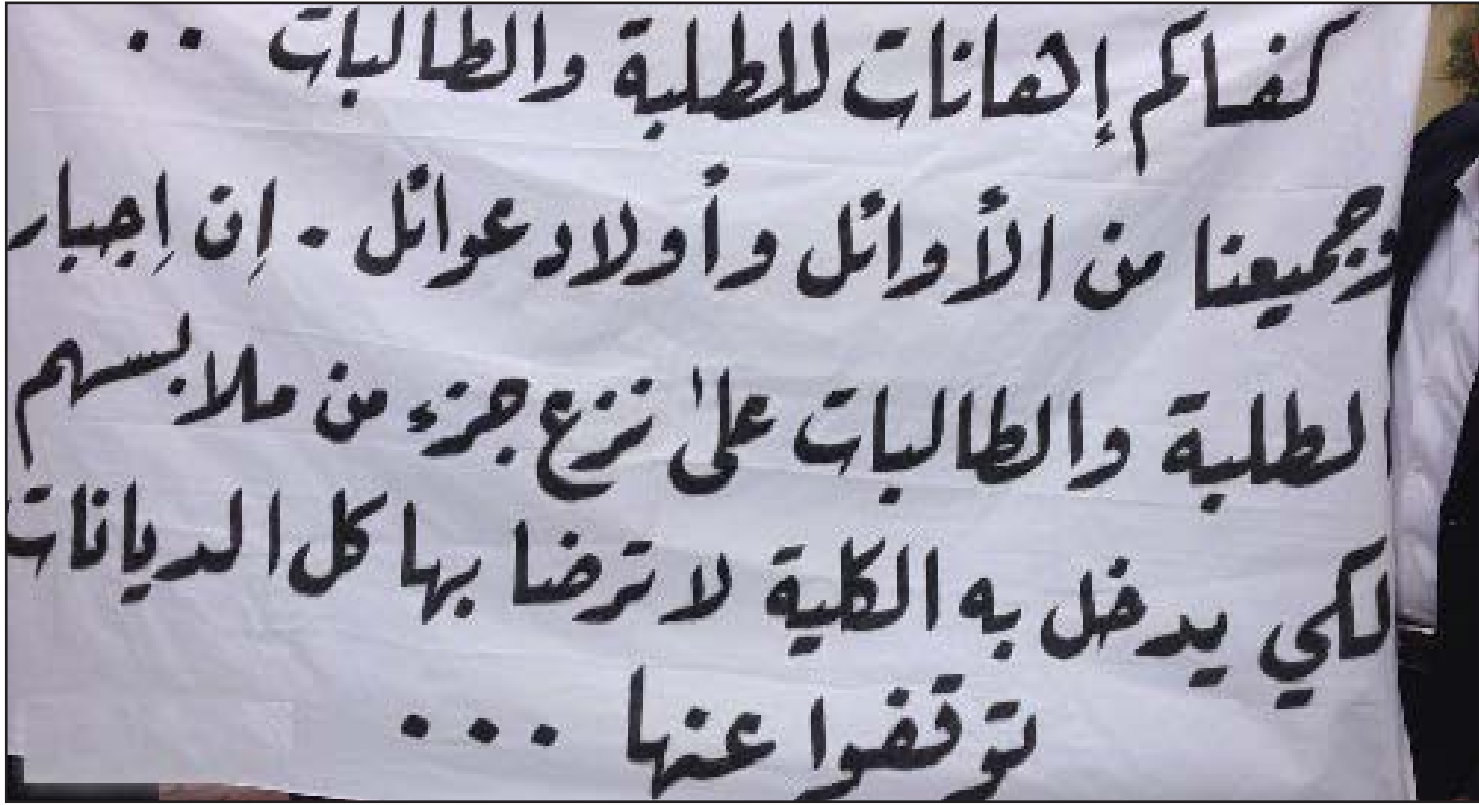 كفاكم إهانات للطلبة والطالبات ..
وجميعنا من الأوائل وأولاد عوائل . إن إجبار
الطلبة والطالبات على نزع جزء من ملابسهم
لكي يدخل به الكلية لا ترضا بها كل الديانات
توقفوا عنها ...